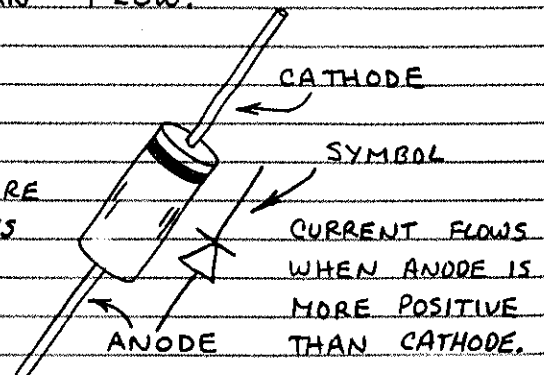 AN FLOW.
CATHODE
SYMBOL
RE
S
CURRENT FLOWS
WHEN ANODE IS
MORE POSITIVE
THAN CATHODE.
ANODE